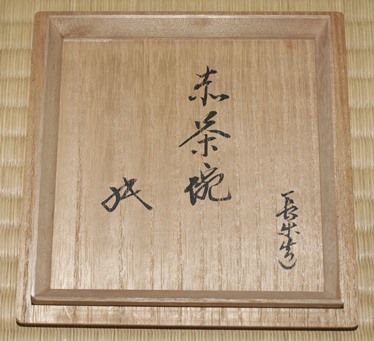 赤茶碗
長楽造